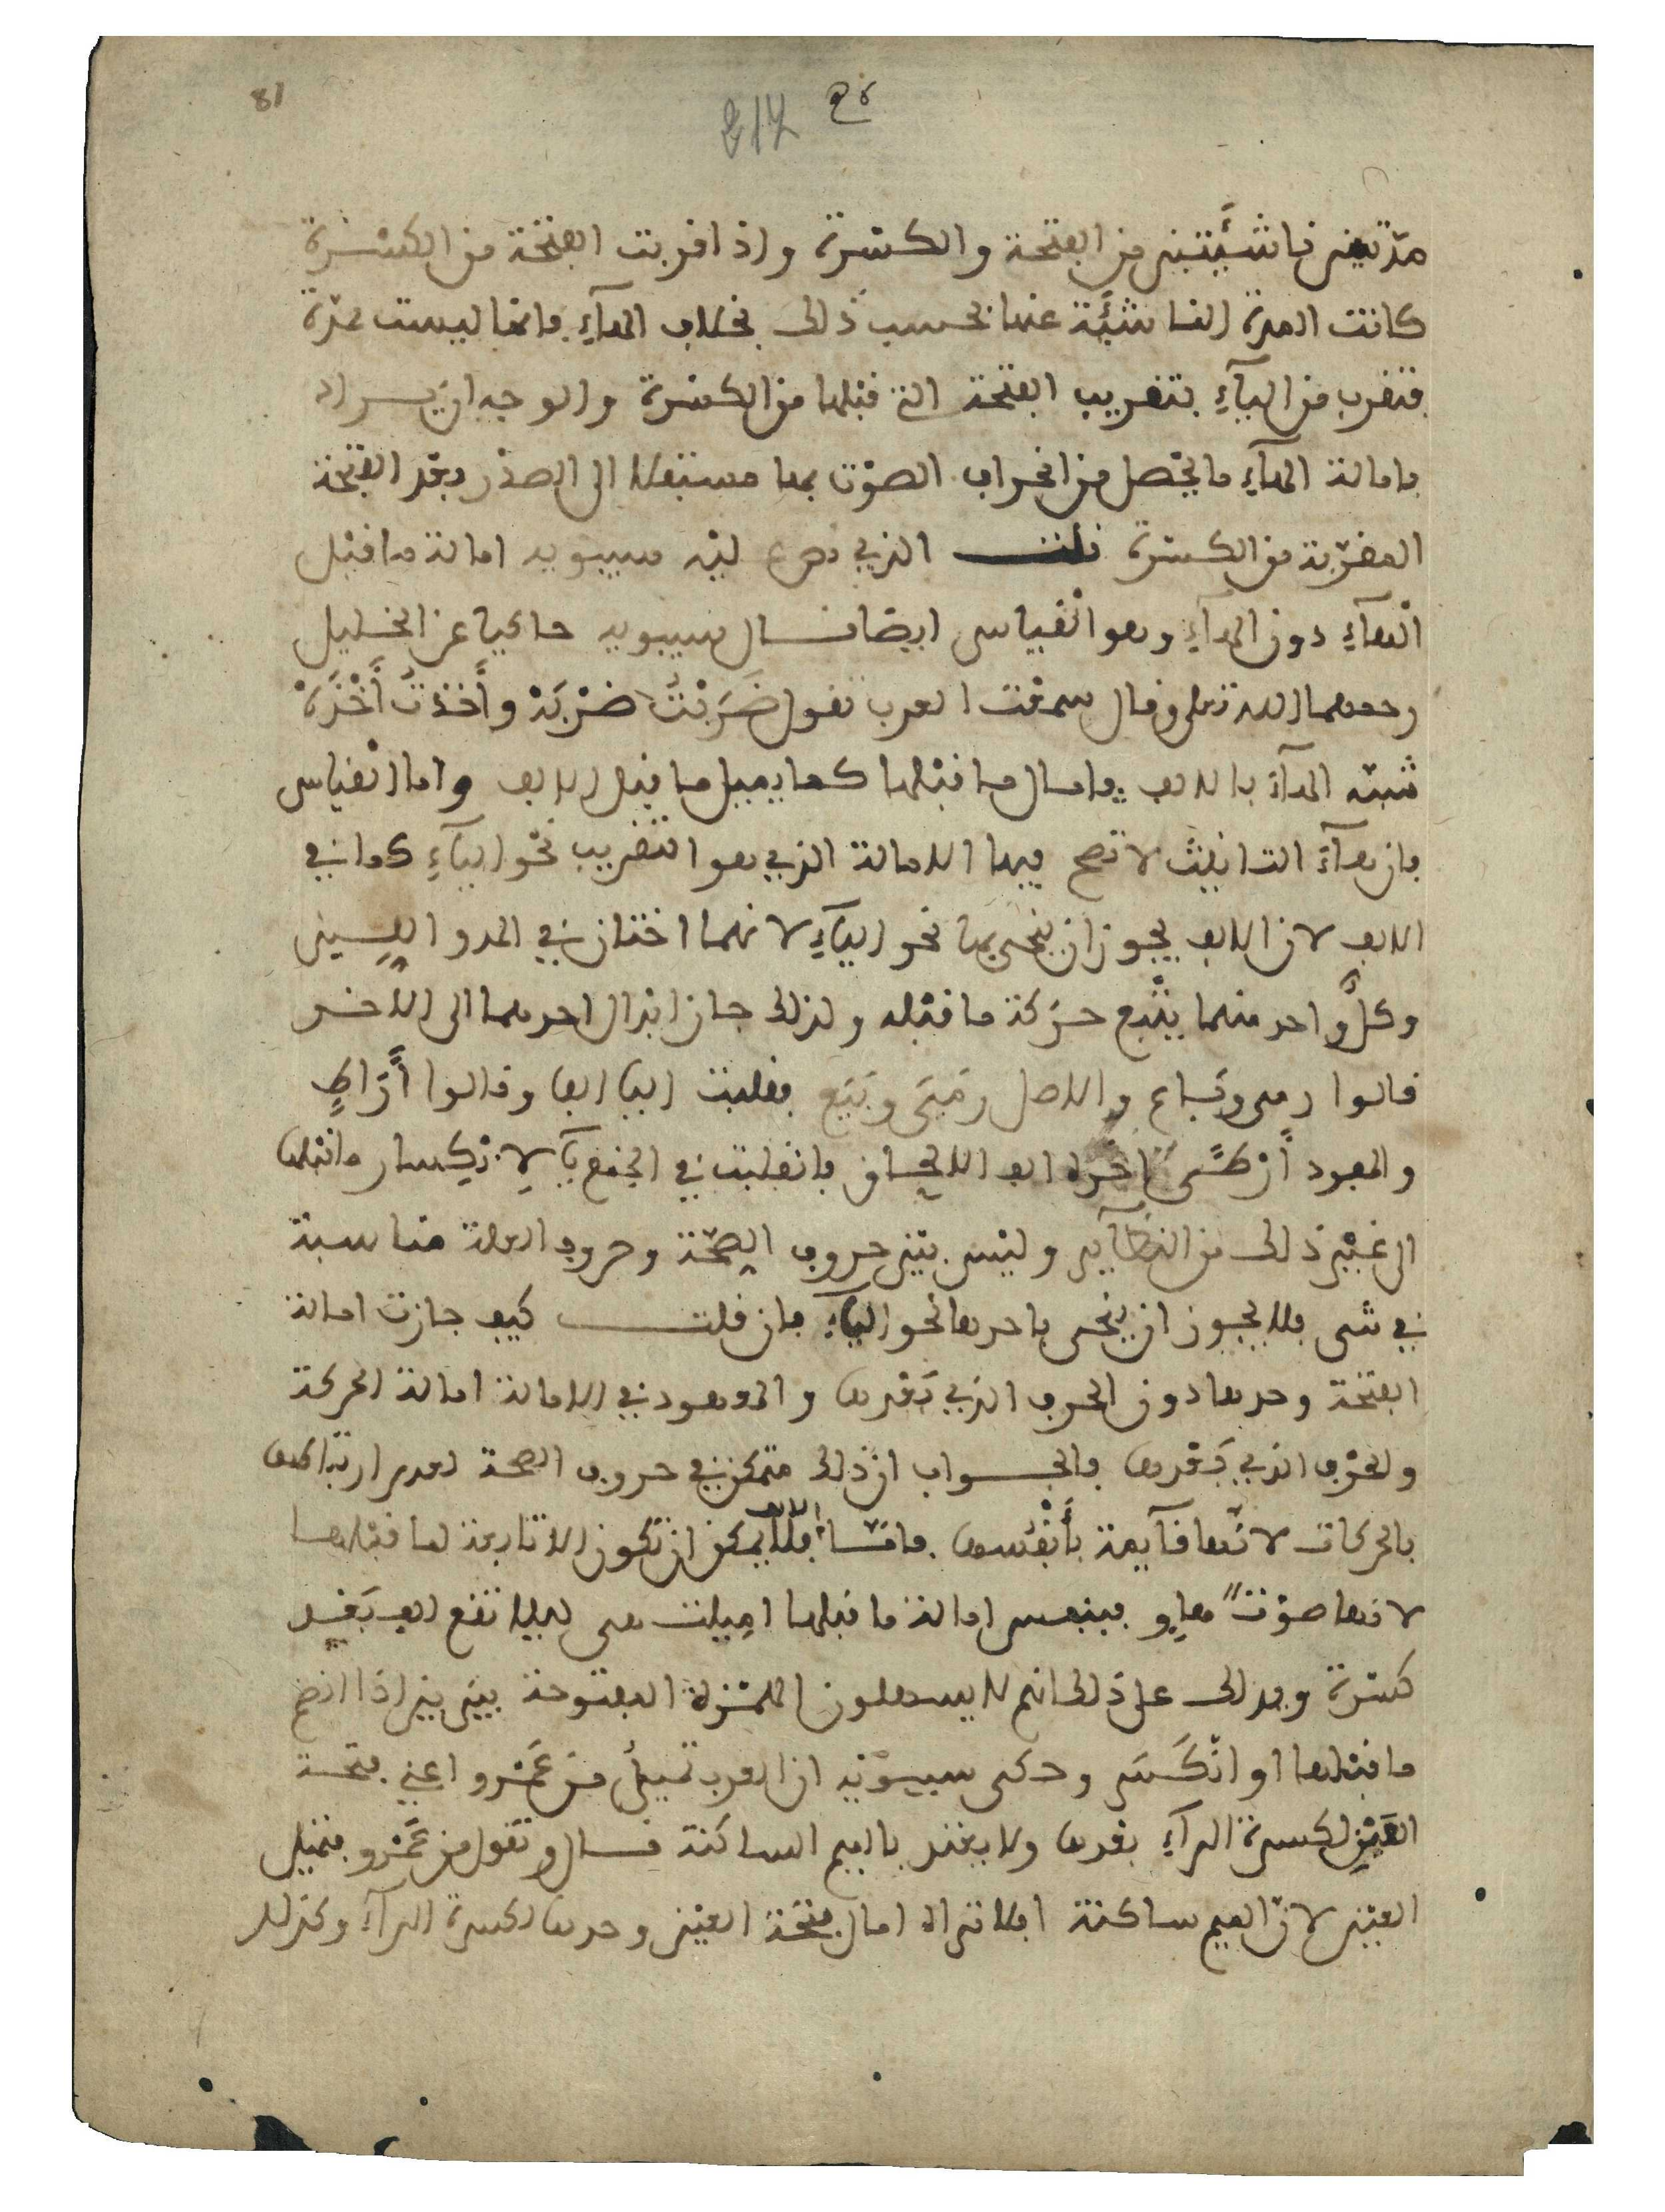 81
مدّتين ناشئتين من الفتحة والكسْرة واذا قربت الفتحة من الكسْرة
كانت المدة الناشئة عنها بحسب ذلك بخلاف الهآءِ فانها ليست بمدّة
فتقرب من اليآءِ بتقريب الفتحة التي قبْلها من الكسْرة والوجه ان يراد
بامالة الهآءِ ما يحْصل من انحراف الصوْت بها مستفلا الى الصدْر بعْد الفتْحة
المقرّبة من الكسرة قلت الذي نص عليْه سيبويه امالة ما قبْل
الْهآءِ دون الهآءِ وهو القياس ايضا قال سيبويه حاكيا عن الخليل
رحمهما الله تعلى وقال سمعْت العرب تقول ضَرَبْتُ ضرْبَهْ وأَخذتُ أَخْذَهْ
شبّه الهآءَ بالالف وامال ما قبْلها كما يميل ما قبْل الالف واما القياس
فان هآءَ التانيث لا تصح فيها الامالة الذي هو التقريب نحْو اليآءِ كما في
الالف لان الالف يجوز ان ينحى بها نحو اليآءِ لانهما اختان في المد واللين
وكلُّ واحد منهما يتْبع حرَكة ما قبْله ولذلك جاز ابْدال احدهما الى الاخر
قالوا رمى وبَاع والاصل رمَيَ وبَيَع فقلبت اليا الفا وقالوا أَرَاطٍ
والمفرد أَرْطًى اخره الف الالحاق فانقلبت في الجمْع يآءً لانكسار ما قبْلها
الى غيْر ذلك من النظآير وليْس بيْن حروف الصحّة وحروف العلة مناسبة
في شى فلا يجوز ان ينْحى باحدها نحو اليآءِ فان قلت كيف جازت امالة
الفتحة وحدها دون الحرف الذي بَعْدها والمعهود في الامالة امالة الحركة
والحرْف الذي بَعْدها فالجواب ان ذلك متمكن في حروف الصحة لعدم ارتباطها
بالحركات لانّها قآيمة بأَنْفُسها فامّا الالف فلا يمكن ان تكون الا تابعة لما قبْلها
لانها صوْت هاوٍ فبنفس امالة ما قبلها اميلت هى ليلا تقع الف بَعْد
كسْرة ويدلك على ذلك انهم لا يسهلون الهمْزة المفتوحة بيْن بيْن اذا انضم
ما قبْلها او انْكَسَر وحكى سيبوَيْه ان العرب تميلُ منَ عَمْرو اعني فتحة
العَيْن لكسرة الرآءِ بعْدها ولا يعْتد بالميم الساكنة قال وتقول من عَمْرو فتميل
العيْن لانّ الميم ساكنة افلا تراه امال فتْحة العيْن وحدها لكسرة الرآءِ وكذلك